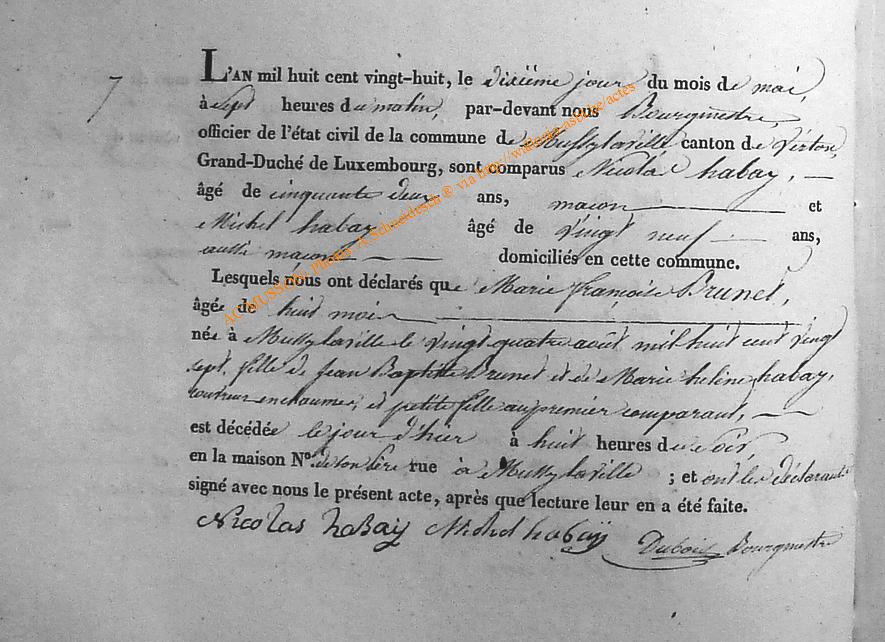 7
L'AN mil huit cent vingt-huit, le dixième jour du mois de mai,
à Sept heures du matin, par-devant nous Bourgmestre,
officier de l'état civil de la commune de Mussylaville canton de Virton,
Grand-Duché de Luxembourg, sont comparus Nicolas habay,
âgé de cinquante deux ans, maçon et
Michel habay âgé de Vingt neuf ans,
aussi maçon domiciliés en cette commune.
Lesquels nous ont déclarés que Marie françoise Brunet,
âgée de huit mois
née à Mussylaville le vingt quatre août mil huit cent vingt
sept, fille de Jean Baptiste Brunet et de Marie helène habay,
couvreur en chaume, et petite fille au premier comparant,
est décédée le jour d'hier à huit heures du soir,
en la maison N° de son père rue à Mussylaville ; et ont les déclarants
signé avec nous le présent acte, après que lecture leur en a été faite.
Nicolas habay Michel habaÿ Dubois Bourgmestre